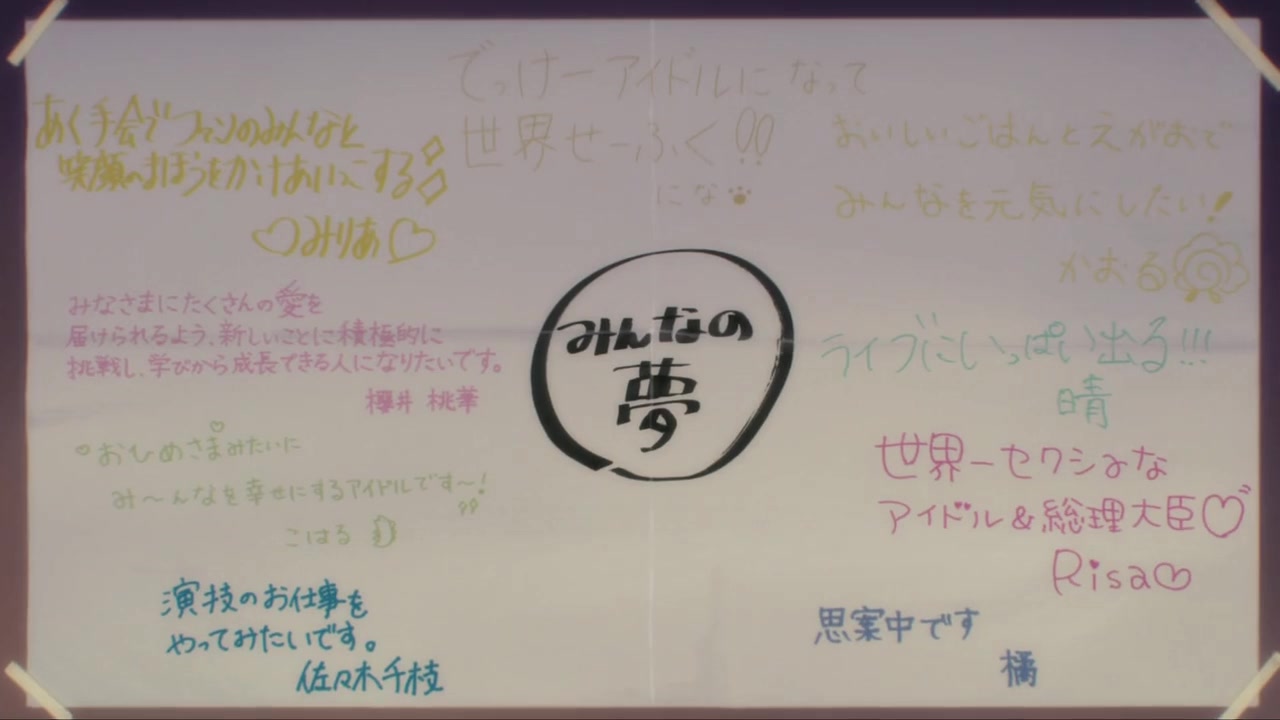 でっけーアイドルになって
世界せーふく!!
にな
あく手会でファンのみんなと
笑顔のまほうをかけあいっこする
みりあ
おいしいごはんとえがおで
みんなを元気にしたい!
かおる
みなさまにたくさんの愛を
届けられるよう、新しいことに積極的に
挑戦し、学びから成長できる人になりたいです。
櫻井 桃華
みんなの
夢
ライブにいっぱい出る!!!
晴
おひめさまみたいに
み〜んなを幸せにするアイドルです〜!
こはる
世界一セクシみな
アイドル&総理大臣
Risa
演技のお仕事を
やってみたいです。
佐々木千枝
思案中です
橘